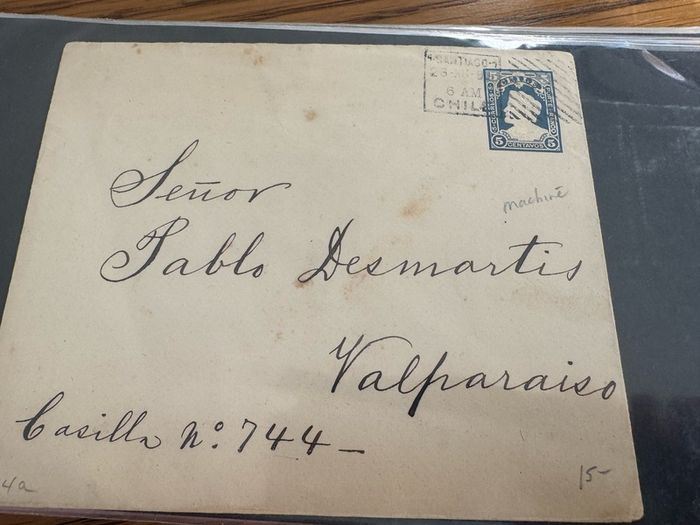 SANTIAGO-1
6 AM
CHILE
5 CENTAVOS 5
machine
Señor
Pablo Desmartis
Valparaiso
Casilla Nº 744-
4a
15-